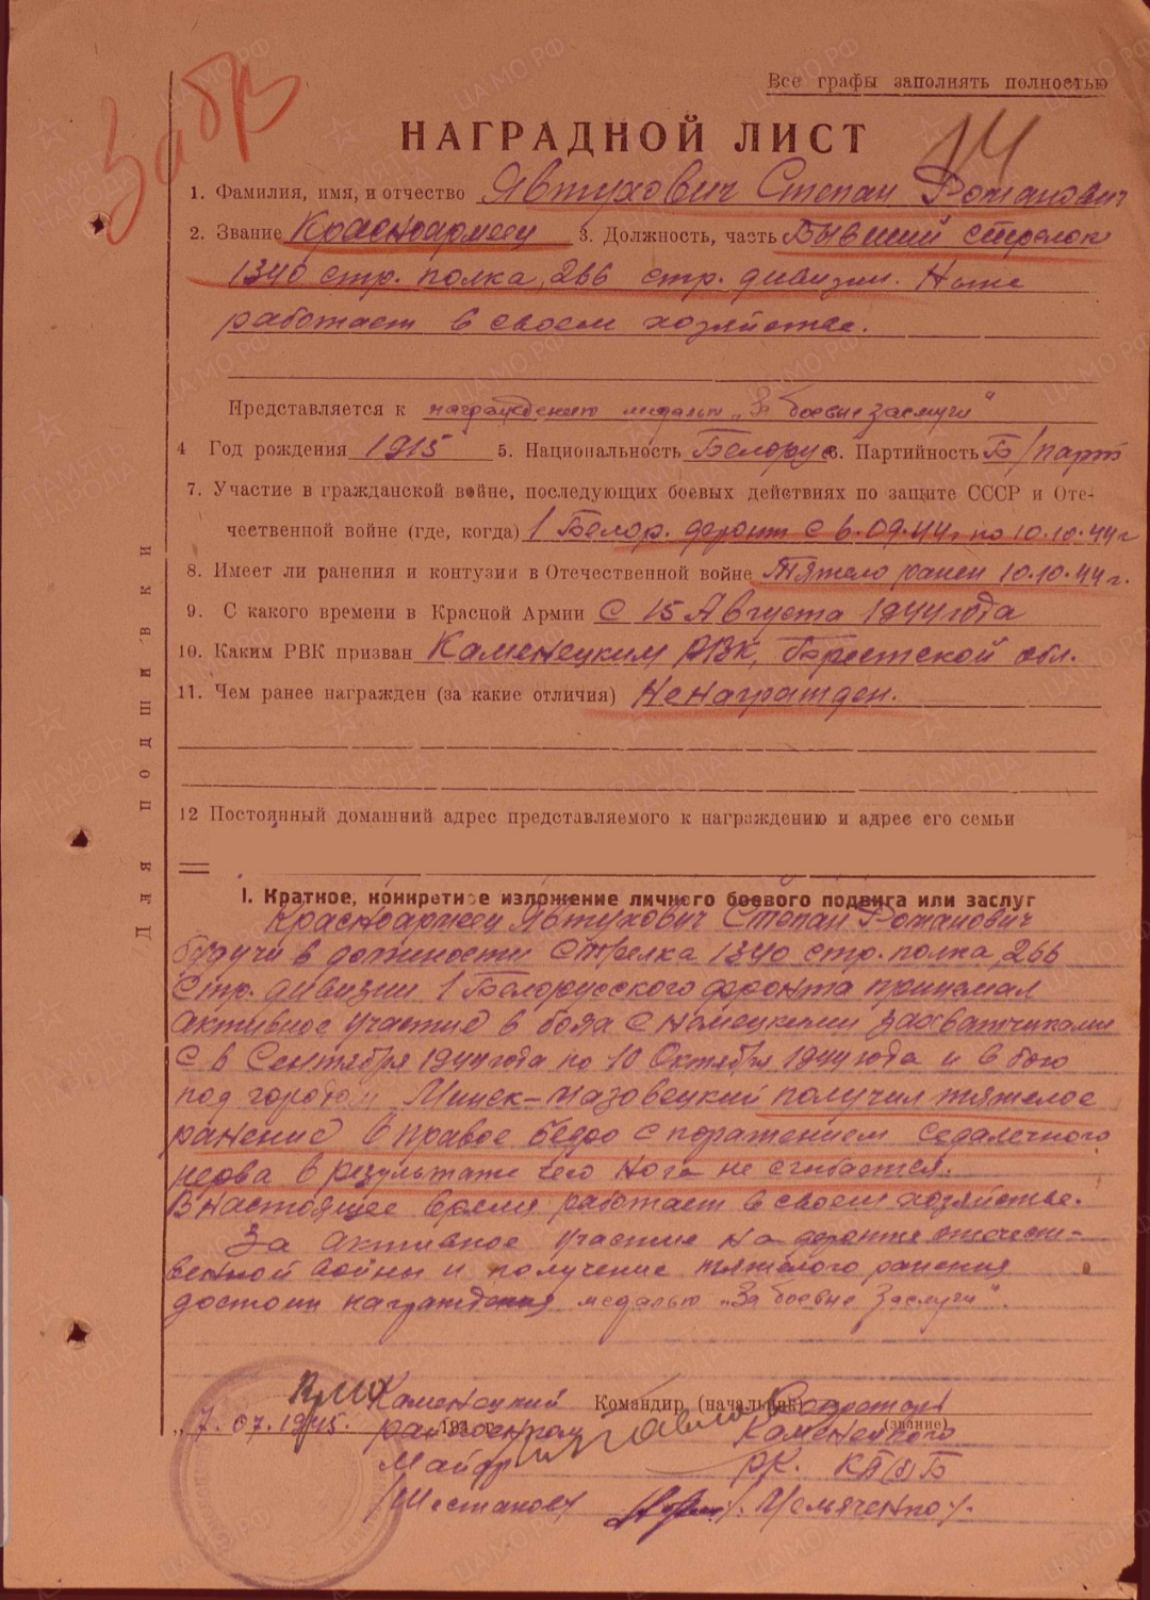 Забз
Все графы заполнять полностью
НАГРАДНОЙ ЛИСТ
14
1. Фамилия, имя, и отчество Явтухович Степан Романович
2. Звание Красноармеец 3. Должность, часть Бывший стрелок
1340 стр. полка, 266 стр. дивизии. Ныне
работает в своем хозяйстве.
Представляется к награждению медалью „За боевые заслуги"
4 Год рождения 1915 5. Национальность Белорус 6. Партийность Б/парт
7. Участие в гражданской войне, последующих боевых действиях по защите СССР и Оте-
чественной войне (где, когда) 1 Белор. фронт с 6.09.44г по 10.10.44г
8. Имеет ли ранения и контузии в Отечественной войне Тяжело ранен 10.10.44г.
9. С какого времени в Красной Армии С 15 Августа 1944 года
10. Каким РВК призван Каменецким РВК, Брестской обл.
11. Чем ранее награжден (за какие отличия) Не награжден.
12 Постоянный домашний адрес представляемого к награждению и адрес его семьи
Для подшивки
I. Краткое, конкретное изложение личного боевого подвига или заслуг
Красноармеец Явтухович Степан Романович
будучи в должности Стрелка 1340 стр. полка 266
Стр. дивизии 1 Белорусского фронта принемал
активное участие в боях с немецкими захватчиками
С 6 Сентября 1944 года по 10 Октября 1944 года и в бою
под городом Минск-Мазовецкий получил тяжелое
ранение в правое бедро с поражением седалечного
нерва в результате чего нога не сгибается.
В настоящее время работает в своем хозяйстве.
За активное участие на фронте отечест-
венной войны и получение тяжелого ранения
достоин награждения медалью „За боевые Заслуги".
Каменецкий Командир (начальник) Секретарь
„7.07.1945. 194 г. райвоенком Каменецкого (звание)
Майор РК. КП(б)Б
/Шестаков/ /Мельяченко/.